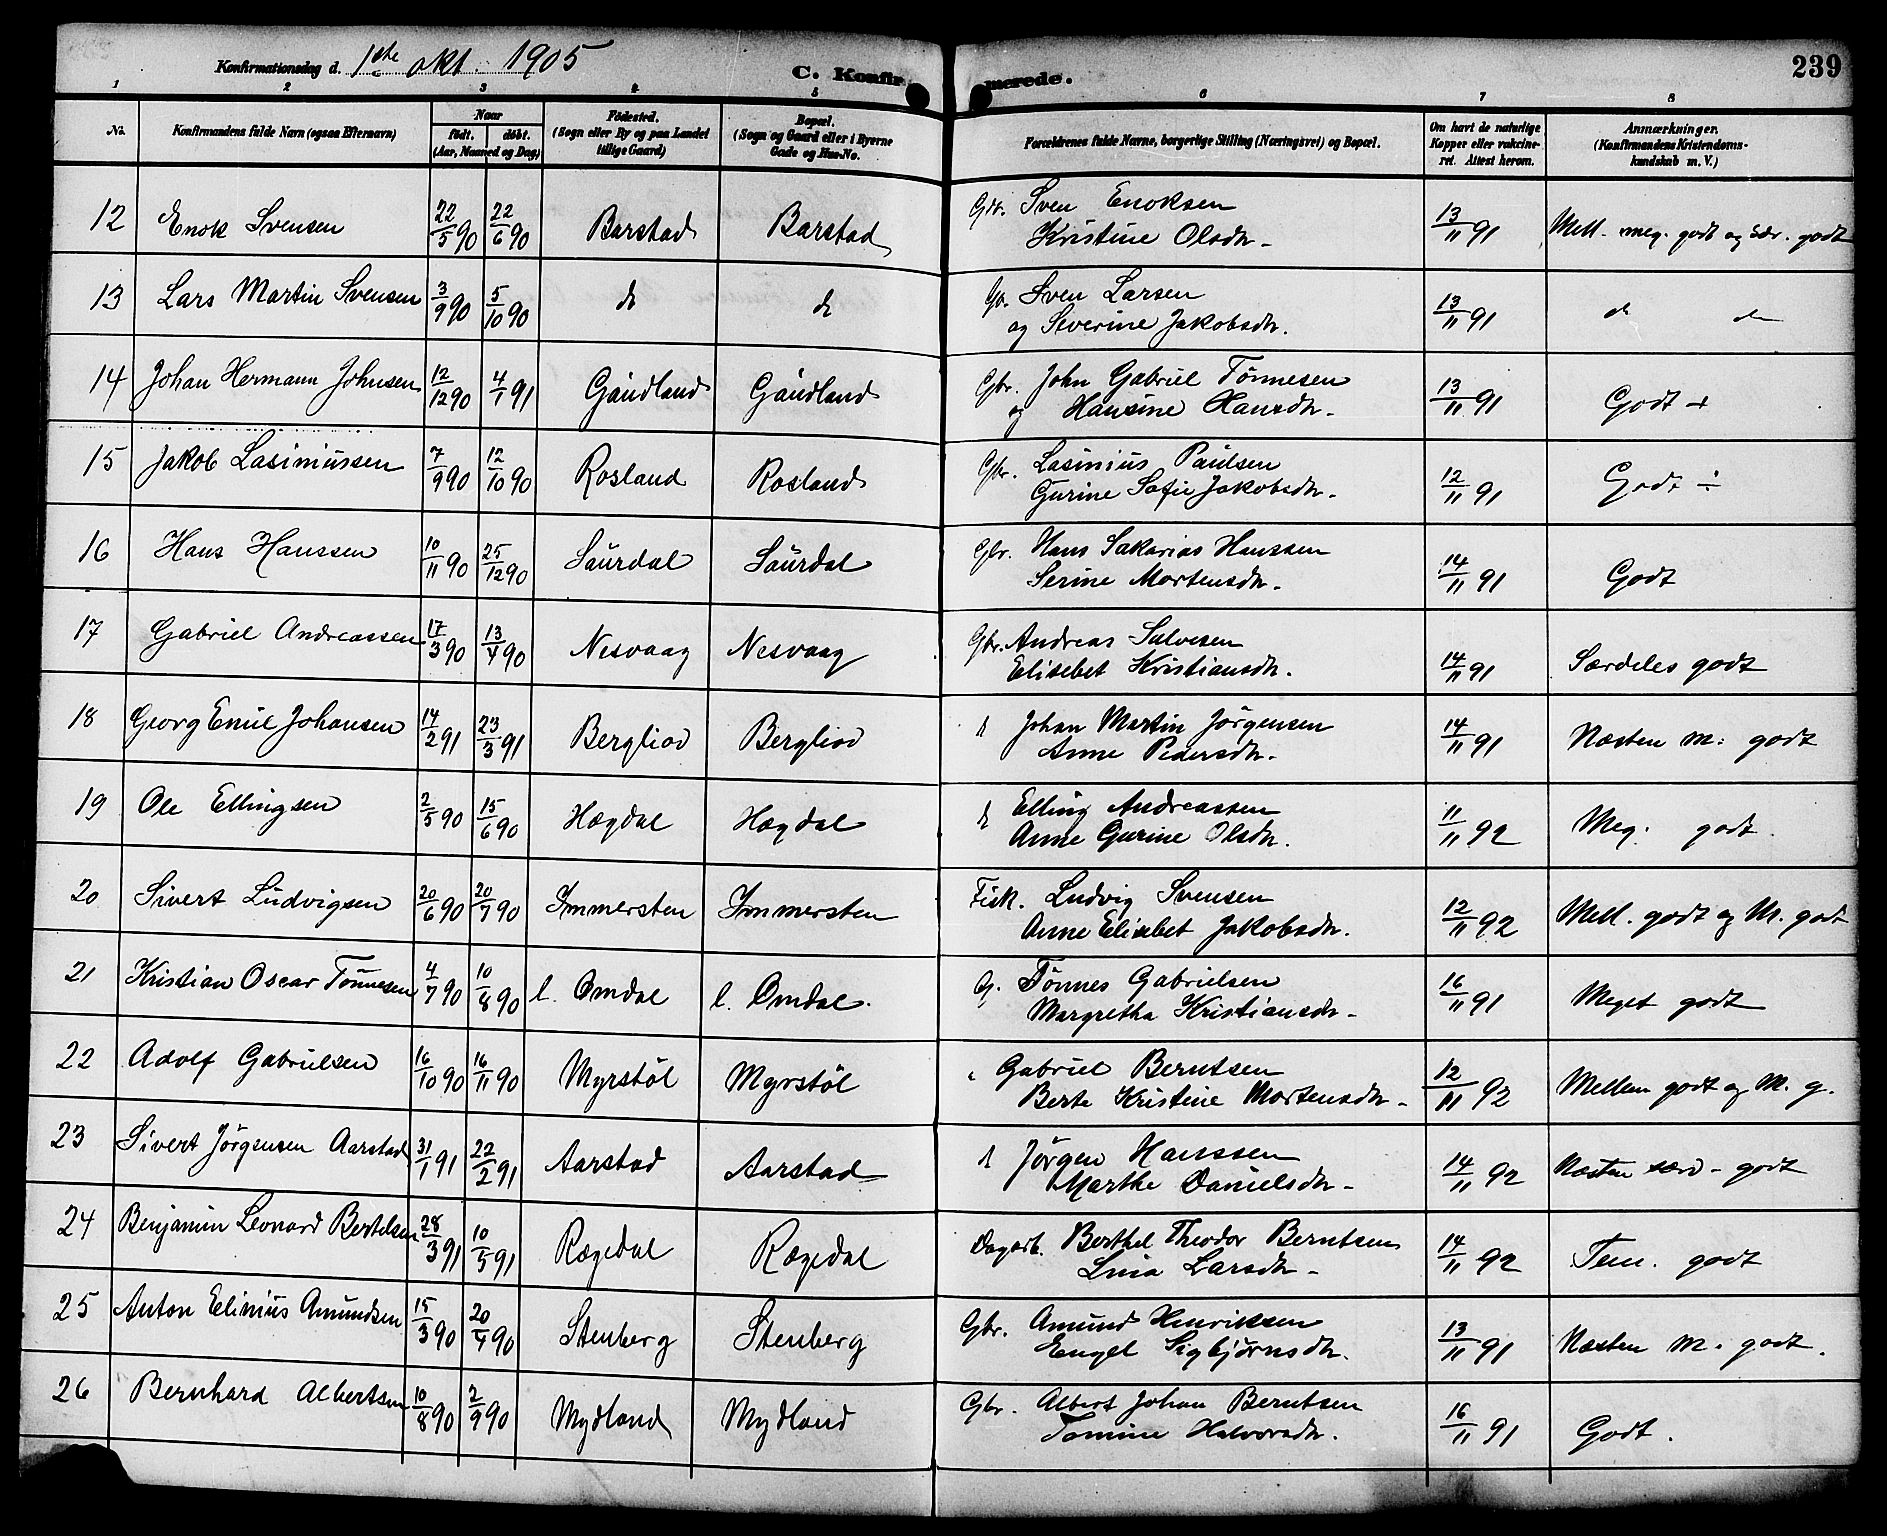 Konfirmationsdag d. 1ste okt. 1905
C. Konfirmerede.
239
1 2 3 4 5 6 7 8
No.
Konfirmandens fulde Navn (ogsaa Efternavn)
Naar
født. døbt.
(Aar, Maaned og Dag)
Fødested.
(Sogn eller By og paa Landet
tillige Gaard)
Bopæl.
(Sogn og Gaard eller i Byerne
Gade og Hus-No.
Forældrenes fulde Navne, borgerlige Stilling (Næringsvei) og Bopæl.
Om havt de naturlige
Kopper eller vakcine-
ret. Attest herom.
Anmærkninger.
(Konfirmandens Kristendoms-
kundskab m. V.)
12 Enok Svensen 22/5 90 22/6 90 Barstad Barstad Gbr. Sven Enoksen 13/11 91 Mell. meg. godt og sær. godt
Kristine Olsdr.
13 Lars Martin Svensen 3/9 90 5/10 90 d d Gbr. Sven Larsen 13/11 91 d d
og Severine Jakobsdr.
14 Johan Hermann Johnsen 12/12 90 4/1 91 Gaudland Gaudland Gbr. John Gabriel Tönnesen 13/11 91 Godt +
og Hansine Hansdr.
15 Jakob Lasiniussen 7/9 90 12/10 90 Rosland Rosland Gbr. Lasinius Paulsen 12/11 91 Godt ÷
Gurine Sofie Jakobsdr.
16 Hans Hanssen 10/11 90 25/12 90 Saurdal Saurdal Gbr. Hans Sakarias Hanssen 14/11 91 Godt
Serine Mortensdr.
17 Gabriel Andreassen 17/3 90 13/4 90 Nesvaag Nesvaag Gbr. Andreas Salvesen 14/11 91 Særdeles godt
Elisebet Kristiansdr.
18 Georg Emil Johansen 14/2 91 23/3 91 Bergliod Bergliod d Johan Martin Jörgensen 14/11 91 Næsten m: godt
Anne Pedersdr.
19 Ole Ellingsen 2/5 90 15/6 90 Hægdal Hægdal d Elling Andreassen 11/11 92 Meg. godt.
Anne Gurine Olsdr.
20 Sivert Ludvigsen 20/6 90 20/7 90 Immersten Immersten Fisk. Ludvig Svensen 12/11 92 Mell. godt og M. godt
Anne Elisebet Jakobsdr.
21 Kristian Oscar Tönnesen 4/7 90 10/8 90 l. Omdal l. Omdal. G. Tönnes Gabrielsen 16/11 91 Meget godt
Margretha Kristiansdr.
22 Adolf Gabrielsen 16/10 90 16/11 90 Myrstöl Myrstöl Gabriel Berntsen 12/11 92 Mellem godt og M. g.
Berte Kristine Mortensdr.
23 Sivert Jörgensen Aarstad 31/1 91 22/2 91 Aarstad Aarstad d Jörgen Hanssen 14/11 92 Næsten særd. godt
Marthe Danielsdr.
24 Benjamin Leonard Bertelsen 28/3 91 10/5 91 Rægedal Rægedal Dagarb. Berthel Theodor Berntsen 14/11 92 Tem. godt
Lina Larsdr.
25 Anton Elinius Amundsen 15/3 90 20/4 90 Stenberg Stenberg Gbr. Amund Henriksen 13/11 91 Næsten M. godt.
Engel Sigbjørnsdr.
26 Bernhard Albertsen 10/8 90 2/9 90 Mydland Mydland Gbr. Albert Johan Berntsen 16/11 91 Godt.
Tomine Halvorsdr.